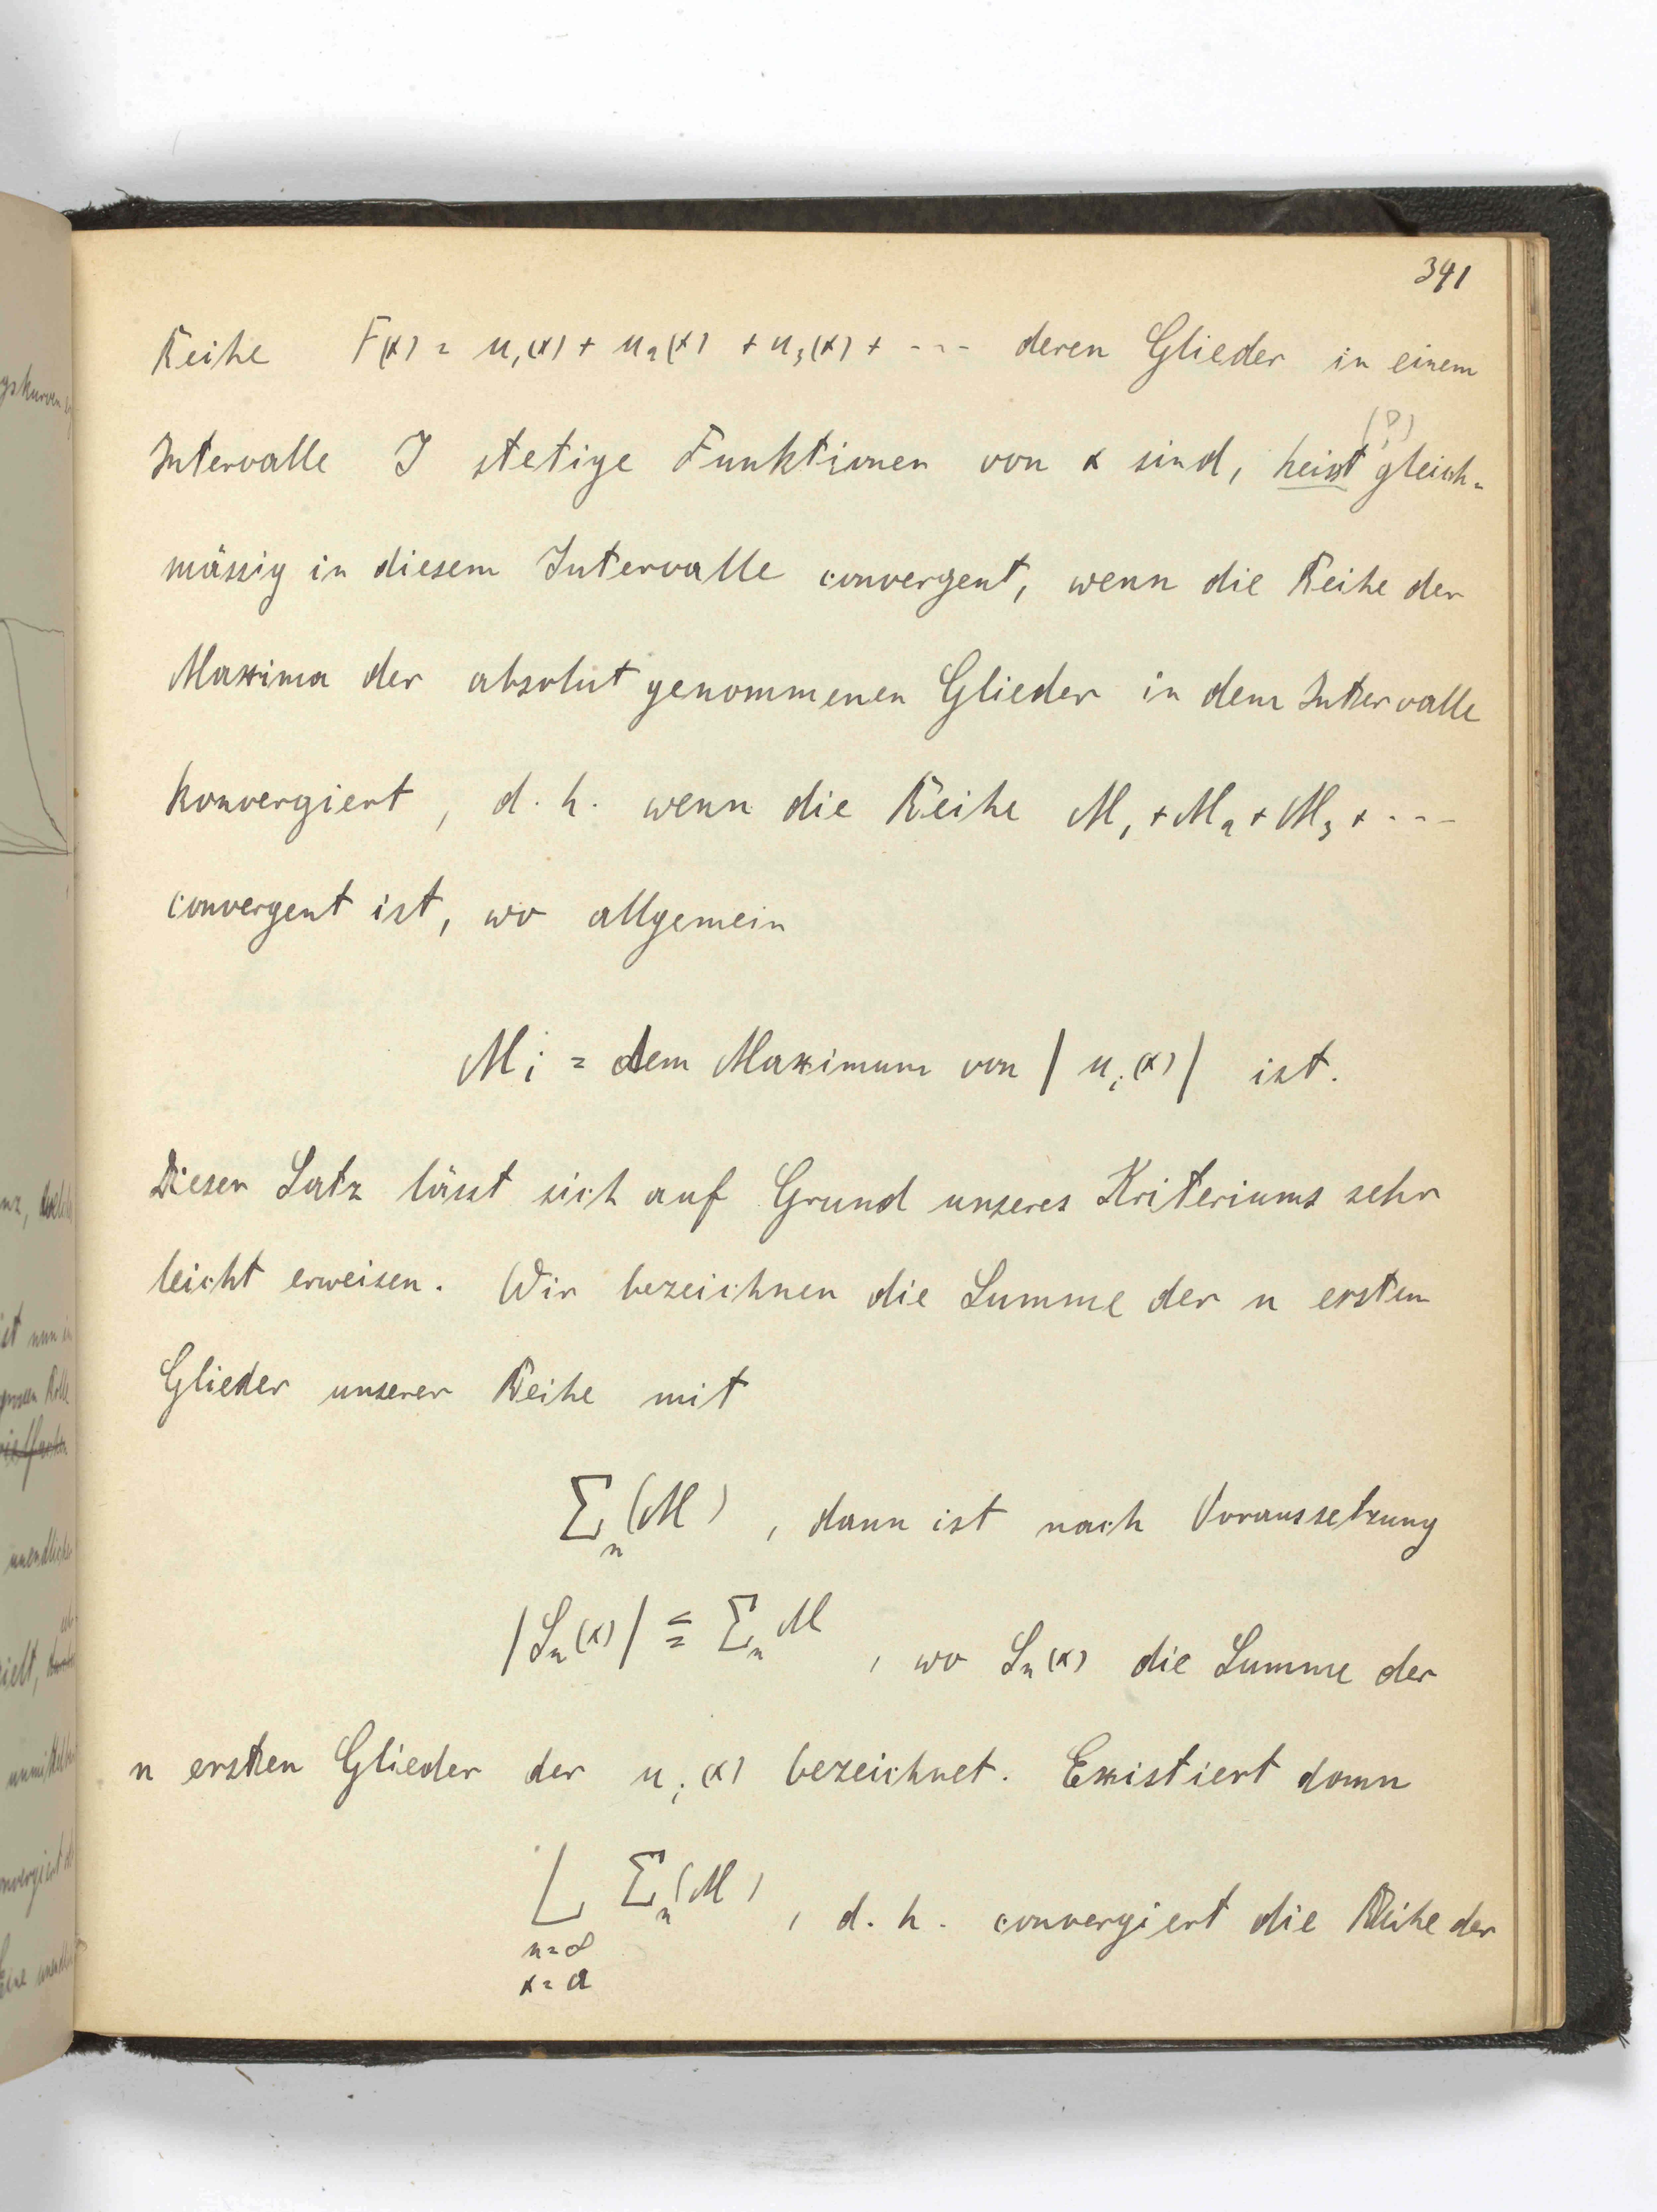 341
Reihe F(x) = u₁(x) + u₂(x) + u₃(x) + --- deren Glieder in einem
Intervalle J stetige Funktionen von x sind, heisst (?) gleich=
mässig in diesem Intervalle convergent, wenn die Reihe der
Maxima der absolut genommenen Glieder in dem Intervalle
konvergiert, d. h. wenn die Reihe M₁ + M₂ + M₃ + ---
convergent ist, wo allgemein
Mi = dem Maximum von | uᵢ(x) | ist.
Dieser Satz lässt sich auf Grund unseres Kriteriums sehr
leicht erweisen. Wir bezeichnen die Summe der n ersten
Glieder unserer Reihe mit
Σₙ (M), dann ist nach Voraussetzung
|Sₙ(x)| ≦ Σₙ M, wo Sₙ(x) die Summe der
n ersten Glieder der uᵢ(x) bezeichnet. Existiert dann
L Σₙ(M), d. h. convergiert die Reihe der
n=∞
x=a